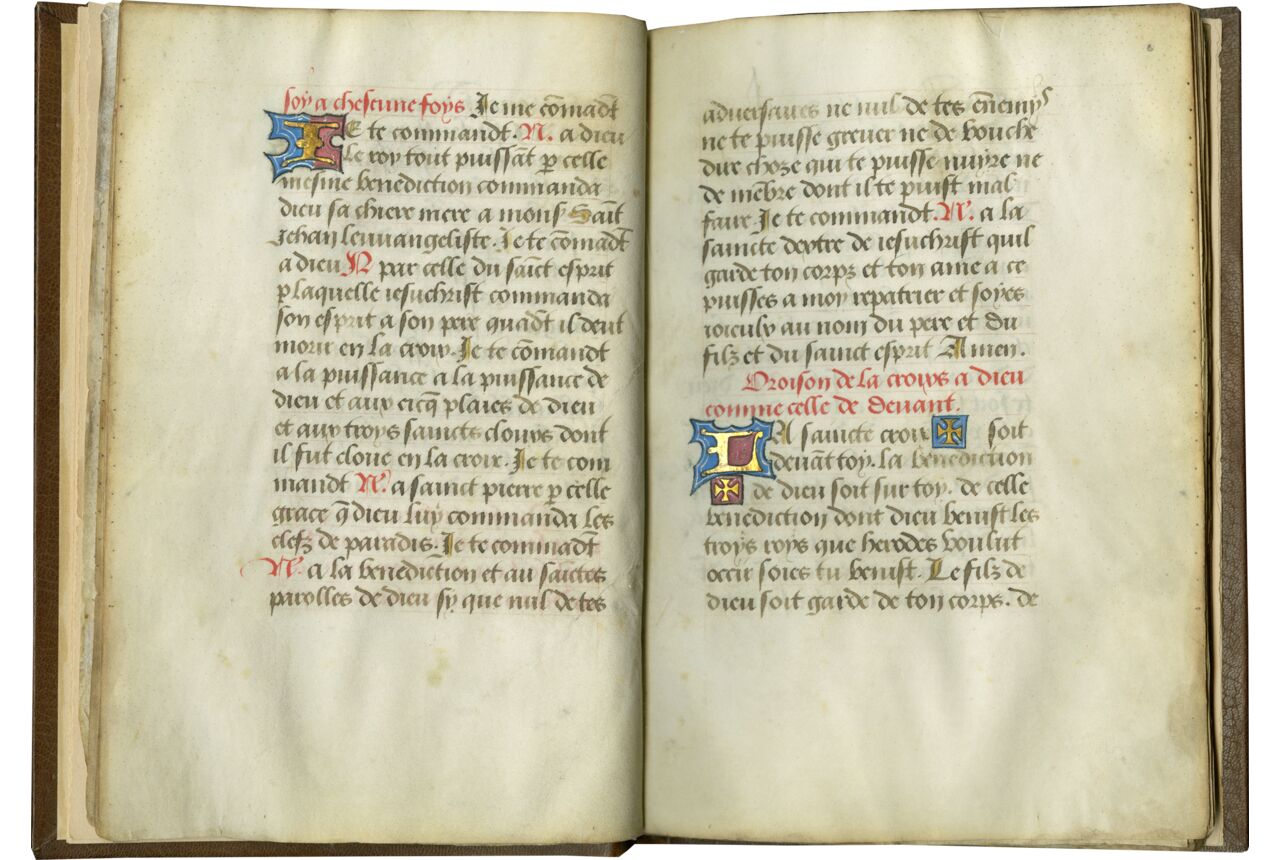 soy a chescune foys Je me cōmādt
IE te commandt. N. a dieu
le roy tout puissāt p celle
mesme benediction commanda
dieu sa chiere mere a mons saīt
Jehan leuuangeliste. Je te cōmādt
a dieu N par celle du saīct esprit
p laquelle iesuchrist commanda
son esprit a son pere quādt il deut
morir en la croix. Je te cōmandt
a la puissance a la puissance de
dieu et aux cīcq plaies de dieu
et aux troys saīcts clouys dont
il fut cloue en la croix. Je te com
mandt N. a saīnct pierre p celle
grace q̄ dieu luy commanda les
clefz de paradis. Je te commādt
N. a la benediction et au saīctes
parolles de dieu sy que nul de tes
aduersaires ne nul de tes ēnemys
ne te puisse greuer ne de bouche
dire choze qui te puisse nuyre ne
de mēbre dont il te puist mal
faire Je te commandt. N. a la
saincte dextre de iesuchrist quil
garde ton corps et ton ame a ce
puisses a moy repatrier et soyes
au nom du pere et du
filz et du sainct esprit Amen.
Oroison de la croixs a dieu
comme celle de deuant.
LA saincte croix ✠ soit
deuāt toy. la benediction
✠ de dieu soit sur toy. de celle
benediction dont dieu benist les
troys roys que herodes voulut
occir soies tu benist. Le filz de
dieu soit garde de ton corps. de